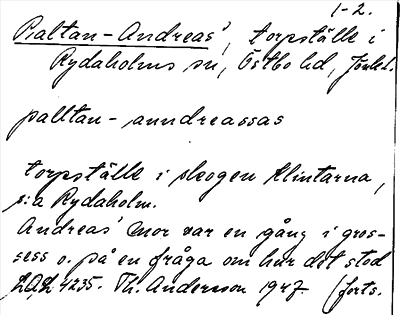 1-2.
Paltan-Andreas', torpställe i
Rydaholms sn, Östbo hd, Jönk.l.
palltan- anndreassas
torpställe i skogen Klintarna,
s:a Rydaholm.
Andreas' mor var en gång i gros-
sess o. på en fråga om hur det stod
LAL 4235. Th. Andersson 1947. (forts.